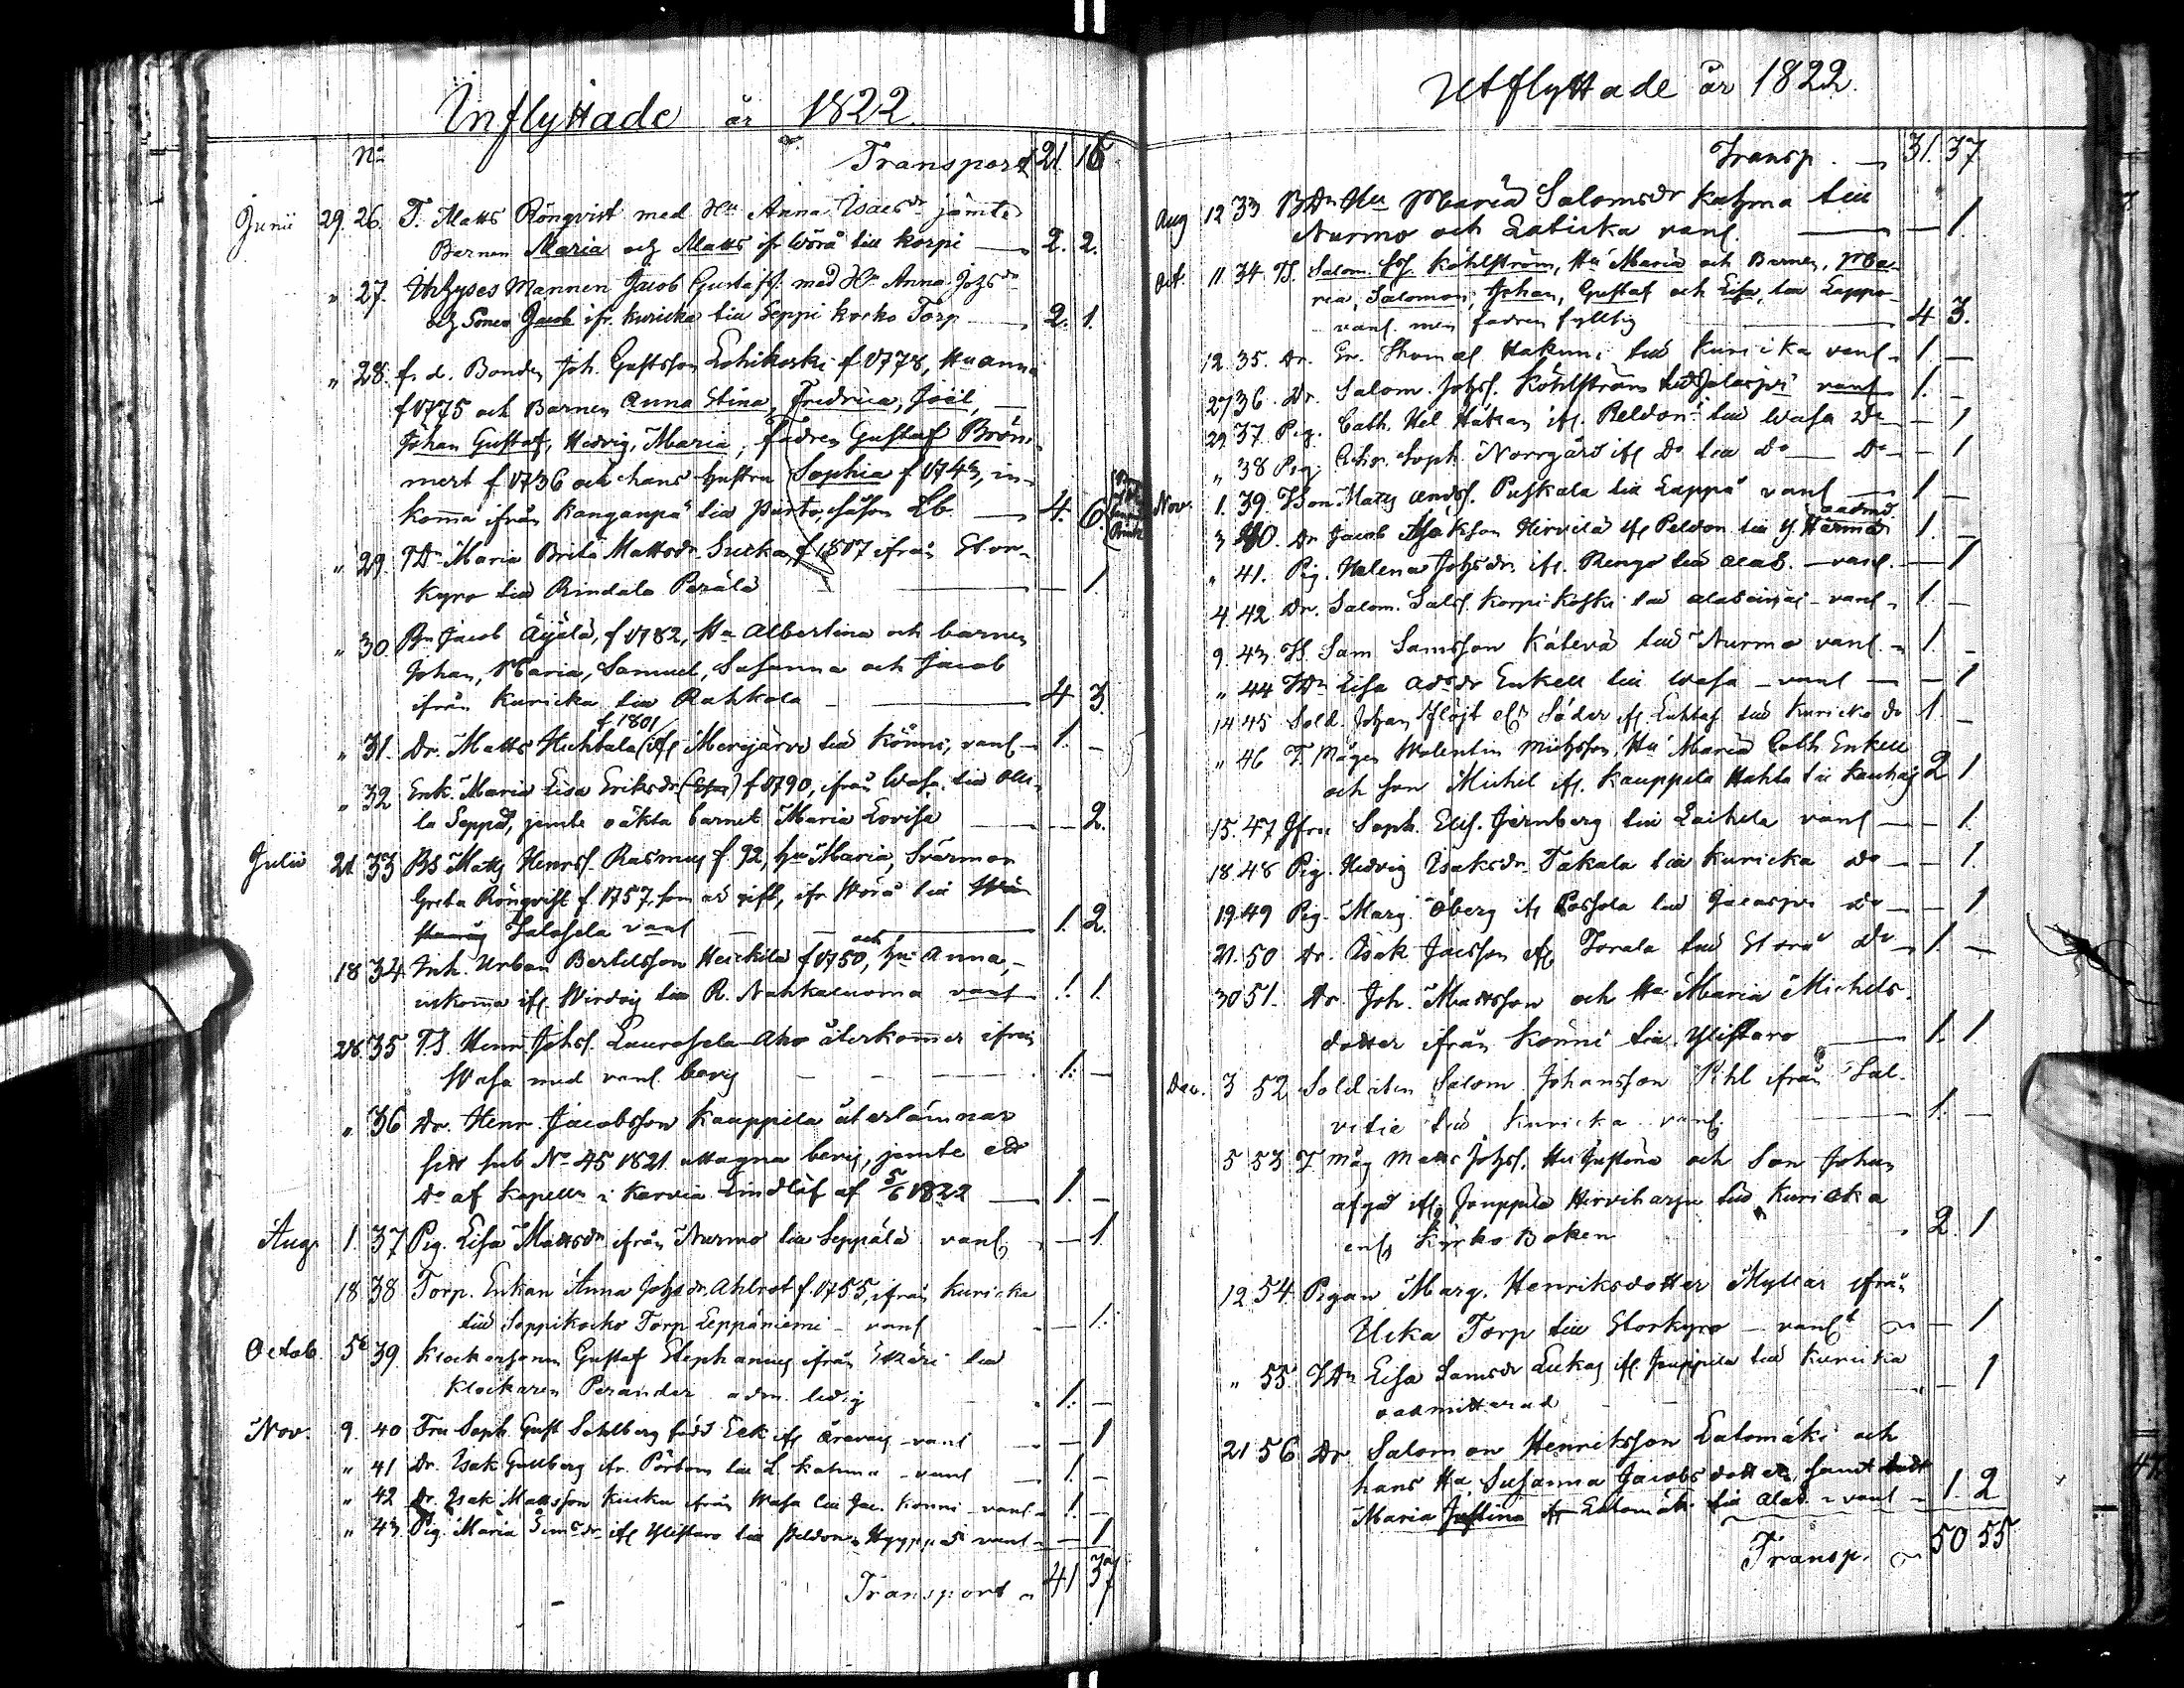 Inflyttade år 1822.
No Transport 21. 16.
Junii 29. 26. T. Matts Rönqvist med Hu Anna Isacsdr jämte
Barnen Maria och Matts ifr Wörå till Korpi 2. 2.
" 27. Inhyses Mannen Jacob Gustafss. med Hu Anna Johsdr
och Sonen Jacob ifr. Kuricka till Seppi Torp 2. 1.
" 28. f. d. Bonden Joh. Gustsson Lohikoski f 1778, Hu Anna
f 1775 och Barnen Anna Stina, Fredrica, Joël,
Johan Gustaf, Hedvig, Maria, Fadren Gustaf Bröm-
mert f 1736 och hans hustru Sophia f 1743, in-
komma ifrån Kanganpä till 4. 6.
" 29. TDr Maria Brita Mattsdr f 1807 ifrån Stor-
kyro till Rindala Perälä — 1.
" 30. Bn Jacob Äijälä, f 1782, Hu Albertina och barnen
Johan, Maria, Samuel, Susanna och Jacob
ifrån Kuricka till Rahkola 4 3.
f 1801
" 31. Dr. Matts Huhtala ifs Merijärvi till Könni, vanl 1. –
" 32 Enk. Maria Lisa Eriksdr f 1790, ifrån Wasa till Olli-
la Seppä, jemte oäkta barnet Maria Lovisa — 2.
Julii 21 33 BS Matts Henrss. Rasmus f. 92, hu Maria, Svärmor
Greta Rönqvist f. 1757, som är gift, ifr Wörå till
Jalasela vanl 1. 2.
och
18 34. Inh. Urban Bertelsson Heickilä f 1750, hu Anna,
inkomma ifs Wirdois till R. Nahkaluoma vanl 1. 1.
28. 35 TS. Henr. Johss. Laurosela Aho återkommer ifrån
Wasa med vanl. bevis 1. –
" 36 Dr. Henr. Jacobsson Kauppila återlämnar
sitt sub No 45 1821 uttagna bevis, jemte ett
Do af Kapelln i Karvia Lindlöf af 5/6 1822 1. –
Aug. 1. 37 Pig. Lisa Mattsdr ifrån Nurmo till Seppälä vanl. – 1.
18 38 Torp. Enkan Anna Johsdr Ahlrot f. 1755, ifrån Kuricka
till Seppikocko Torp Leppäniemi vanl – 1.
Octob. 5 39. Klockarsonen Gustaf Stephanus ifrån Etseri till
Klockaren Perander adm. ledig 1. –
Nov. 9. 40 Fru Soph. Gust Sahlberg född Eek ifs vanl – 1
" 41 Dr. Isak Gullberg ifr. Pörtom till L. Kahma vanl 1. –
" 42 Dr. Isak Mattsson ifrån Wasa till Jac. Könni vanl 1. –
" 43. Pig. Maria Simsdr ifs Ylistaro till Peldon vanl – 1
Transport 41 37
Utflyttade år 1822.
Transp. 31. 37
Aug 12 33 BDr Hu Maria Salomsdr Kahma till
Nurmo och vanl. – 1.
Oct. 11 34. TS. Salom. Johss. Köhlström, Hu Maria och Barnen, Ma-
ria, Salomon, Johan, Gustaf och Lisa till Lappo
vanl. men fadren 4 3.
12. 35. Dr. Er. Thomas Hakuni till Kuricka vanl. 1. –
27 36. Dr. Salom. Johss. Köhlström till Jalasjri vanl 1. –
29 37. Pig. Cath. Hel. Håkan ifs. Peldoni till Wasa Do – 1
" 38 Pig. Soph. Norrgård ifs Do till do Do – 1
Nov. 1. 39. Matts Andss. Puskala till Lappå vanl 1 –
3 40. Dr Jacob Isakson Hirvilä ifs Peldon till Y. Härmä 1. –
" 41. Pig. Helena Johsdr ifs. Rengo till Alav. – vanl. – 1
4. 42 Dr. Salom. Sals. Korpikoski till vanl. 1. –
9. 43. TS. Sam Samsson Kätevä till Nurmo vanl. 1. –
" 44 TDr Lisa Adsdr Enkell till Wasa – vanl – 1
14 45 Sold. Johan Flöjt Söder ifs. Luhtas till Kuricka do 1. –
" 46 T. Mågen Walentin Michsson, Hu Maria Cath. Enkell
och son Michel ifs. Kauppila Hahto till Kauhaj 2 1
15. 47 Jfru Soph. Elis. Jernberg till Laihela vanl – 1.
18. 48 Pig. Hedvig Isaksdr Takala till Kuricka do – 1.
19 49 Pig. Marg. Öberg ifs Possola till Jalasjri do – 1
21. 50 Dr. Isak Jacsson ifs Torala till Storå Do 1. –
30 51. Dr. Joh. Mattsson och Hu Maria Michels-
dotter ifrån Könni till Ylistaro 1. 1.
Dec. 3 52 Soldaten Salom. Johansson Pihl ifrån Sal-
vetie till Kuricka vanl. 1. –
5 53 T. Måg Matts Johss. Hu Justina och Son Johan
ifs Jouppila Hirviharju till Kuricka
enl. Kyrko Boken 2. 1
12. 54. Pigan Marg. Henriksdotter Myllar ifrån
Ucka Torp till Storkyro – vanl. – 1
" 55 TDr Lisa Samsdr Lukas ifs. Jouppila till Kuricka
oadmitterad – 1
21 56 Dr Salomon Henriksson Latomäki och
hans Hu Susanna Jacobsdotter, samt dottr
Maria Justina ifr Latomäki till Alav. vanl 1 2
Transp. 50 55